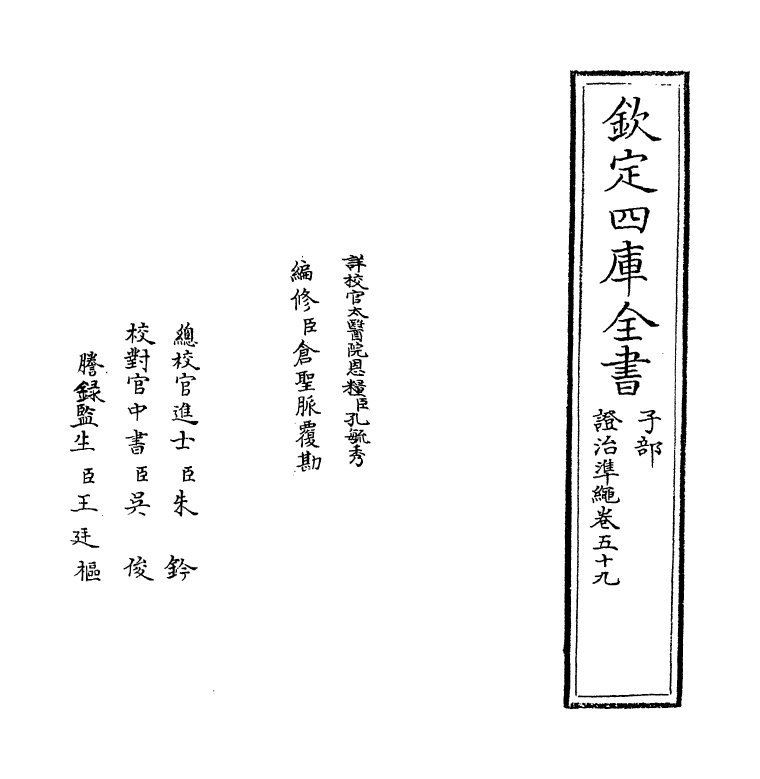 欽定四庫全書
子部
證治準繩卷五十九
詳校官太醫院恩糧臣孔毓秀
編修臣倉聖脈覆勘
總校官進士臣朱鈐
校對官中書臣吳俊
謄錄監生臣王廷樞